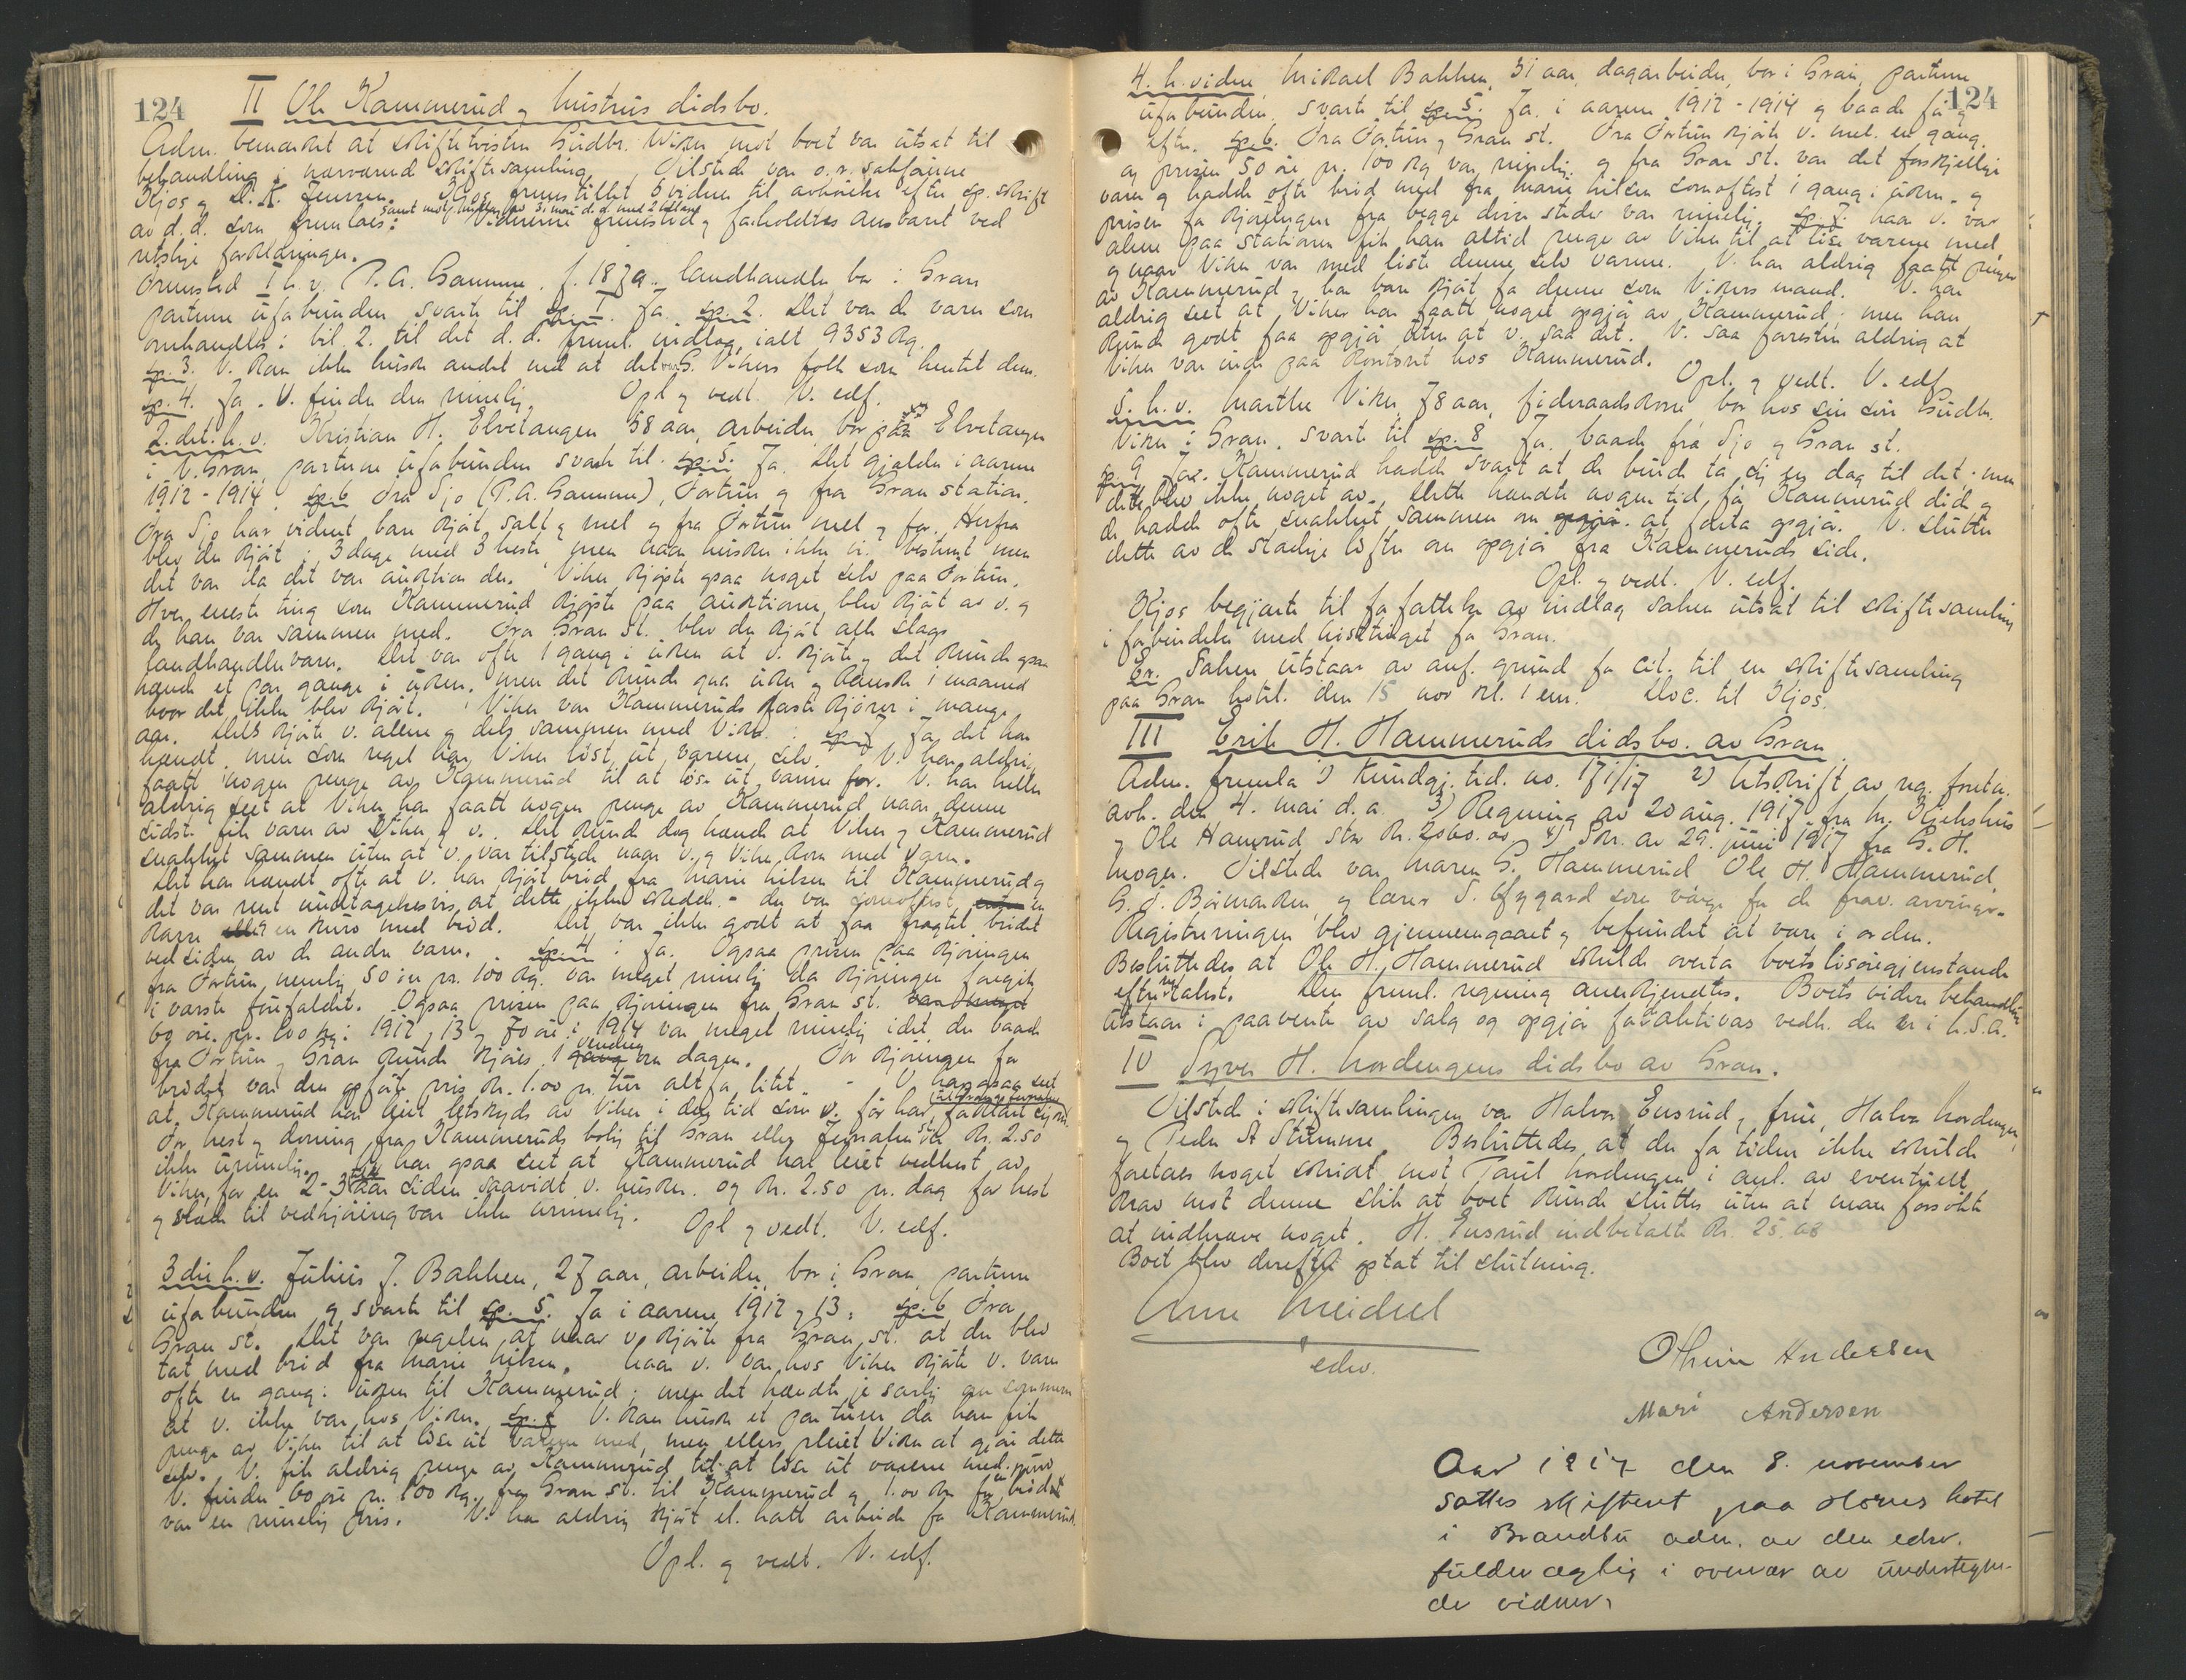 124
II Ole Kammerud og hustrus dødsbo.
Adm. bemerket at skiftetvisten Gudbr. Viken mot boet var utsat til
behandling i nærværende skiftesamling. Tilstede var o.r. sakførerne
Kjos og D. K. Jensen. Kjos fremstillet 5 vidner til avhørelse efter sp. skrift
samt motindlæg av 3. mai d. d. med 2 bilag
av d. d. som fremlaes: Vidnerne fremstod og foreholdtes ansvaret ved
retslige forklaringer.
Fremstod 1 h. v. P. A. Gamme f. 1879. landhandler bor i Gran
parterne ufobunden svarte til sp. 1. Ja. sp. 2. Det var de varer som
omhandles i bil. 2. til det d. d. freml. indlæg, ialt 9353 kg.
sp. 3. V. kan ikke huske andet end at det var G. Vikens folk som hentet dem.
sp. 4. Ja. V. finder den rimelig. Opl. og vedt. V. edf.
2. det. h. v. Kristian H. Elvetangen 58 aar, arbeider, bor paa Elvetangen
i V. Gran parterne ufobunden svarte til sp. 5. Ja. Det gjælder i aarene
1912-1914. sp. 6 Fra Sjo (P. A. Gamme), Fortun og fra Gran station.
Fra Sjo har vidnet bare kjørt, salt og mel og fra Fortun mel og for. Herfra
blev der kjørt i 3 dage med 3 heste men haan husker ikke vi. bestemt men
det var da det var auktion der. Viken kjøpte ogsaa noget selv paa Fortun.
Hver eneste ting som Kammerud kjøpte paa auktionen, blev kjørt av v. og
de han var sammen med. Fra Gran st. blev der kjørt alle slags
landhandlervarer. Det var ofte 1 gang i uken at v. kjørte og det kunde ogsaa
hænde et par gange i uken, men det kunde gaa uker og kanske 1 maaned
hvor det ikke blev kjørt. Viken var Kammeruds faste kjører i mange
aar. Dels kjørte v. alene og dels sammen med Viken. sp. 7 Ja det har
hændt, men som regel har Viken løst ut varene selv. V. har aldrig
faatt nogen penge av Kammerud til at løse ut varene for. V. har heller
aldrig seet at Viken har faatt nogen penge av Kammerud naar denne
sidste fik varer av Viken og v. Det kunde dog hænde at Viken og Kammerud
snakket sammen uten at v. var tilstede naar v. og Viken kom med varer.
Det har hændt ofte at v. har kjørt brød fra Marie Nilsen til Kammerud og
det var rent undtagelsesvis at dette ikke skedde. - der var somoftest en
kasse eller en kurv med brød. Det var ikke godt at faa fragtet brødet
ved siden av de andre varer. sp. 4 : Ja. Ogsaa prisen paa kjøringen
fra Fortun nemlig 50 øre pr. 100 kg. var meget rimelig da kjøringen foregik
i værste føre faldet. Ogsaa prisen paa kjøringen fra Gran st. var meget
60 øre. pr. 100 kg. i 1912, 13 og 70 øre i 1914 var meget rimelig idet der baade
vending
fra Fortun og Gran kunde kjøres 1 gang om dagen. For kjøringen for
brødet var den opførte pris kr. 1.00 pr. tur altfor litet. - V. har ogsaa seet
at Kammerud har leiet letskyds av Viken i den tid som v. før har forklart sig om.
For hest og doning fra Kammeruds bolig til Gran eller Jernalen st. var kr. 2.50
ikke urimelig. V. har ogsaa seet at Kammerud hat leiet vedhest av
Viken for en 2-3 aar siden saavidt v. husker. og kr. 2.50 pr. dag for hest
og slæde til vedkjøring var ikke urimelig. Opl. og vedt. V. edf.
3die h. v. Julius J. Bakken, 27 aar, arbeider, bor i Gran, parterne
ufobunden og svarte til sp. 5. Ja i aarene 1912 og 13. sp. 6 Fra
Gran st. Det var regelen at naar v. kjørte fra Gran st. at der blev
tat med brød fra Marie Nilsen. Naar v. var hos Viken kjørte v. varer
ofte en gang i uken til Kammerud; men det hændte jo særlig om sommeren
at v. ikke var hos Viken. sp. 7 V. kan huske et par turer da han fik
penge av Viken til at løse ut varene med, men ellers pleiet Viken at gjøre dette
selv. V. fik aldrig penge av Kammerud til at løse ut varene med.
V. finder 60 øre pr. 100 kg. fra Gran st. til Kammerud og 1.00 kr. for brødet
var en rimelig pris. V. har aldrig kjørt el. hatt arbeide for Kammerud.
Opl. og vedt. V. edf.
124
4. h. vidne, Mikael Bakken, 31 aar, dagarbeider, bor i Gran, parterne
ufobunden. svarte til sp. 5. Ja. i aarene 1912-1914 og baade før og
efter. sp. 6. Fra Fortun og Gran st. Fra Fortun kjørte v. mel. en gang
og prisen 50 øre pr. 100 kg var rimelig. og fra Gran st. var det forskjellige
varer og hadde ofte brød med fra Marie Nilsen somoftest 1 gang i uken. og
prisen for kjøringen fra begge disse steder var rimelig. sp. 7. naar v. var
alene paa stationen fik han altid penge av Viken til at løse varene med
og naar Viken var med løste denne selv varene. V. har aldrig faatt penger
av Kammerud og har bare kjørt for denne som Vikens mand. V. har
aldrig seet at Viken har faatt noget opgjør av Kammerud; men han
kunde godt faa opgjør uten at v. saa det. V. saa foresten aldrig at
Viken var inde paa kontoret hos Kammerud. Opl. og vedt. V. edf.
5. h. v. Marthe Viken, 78 aar, føderaadskone bor hos sin søn Gudbr.
Viken i Gran, svarte til sp. 8 Ja. baade fra Sjo og Gran st.
sp. 9 Ja. Kammerud hadde svart at de burde ta sig en dag til det, men
dette blev ikke noget av. Dette hændte nogen tid, før Kammerud did og
de hadde ofte snakket sammen om opgjør. at foreta opgjør. V. slutter
dette av de stadige løfter om opgjør fra Kammeruds side.
Opl. og vedt. V. edf.
Kjos begjærte til forfattelse av indlæg saken utsat til skiftesamling
i forbindelse med høsttinget for Gran.
Er. Saken utstaar av anf. grund for cit. til en skiftesamling
paa Gran hotel. den 15 nov kl. 1 em. Doc. til Kjos.
III Erik H. Hammeruds dødsbo. av Gran
Adm. fremla 1) Kundgj. tid. no. 171/17 2) Utskrift av reg. forretn.
avh. den 4. mai d. a. 3) Regning av 20 aug. 1917 fra hr. Gjekshus
og Ole Hamrud stor kr. 2060.00 4) Skr. av 29. juni 1917 fra G. H.
Mogen. Tilstede var Maren G. Hammerud Ole H. Hammerud,
G. J. Bøimarken, og lærer S. Nygard som værge for de frav. arvinger.
Registreringen blev gjennemgaaet og befundet at være i orden.
Besluttedes at Ole H. Hammerud skulde overta boets løsøregjenstande
efter takst. Den freml. regning anerkjendtes. Boets videre behandling
utstaar i paavente av salg og opgjør for aktivas vedk. der er i U.S.A.
IV Syver H. Nordengens dødsbo av Gran.
Tilstede i skiftesamlingen var Halvor Ensrud og frue, Halvor Nordengen,
og Peder A Stumne. Besluttedes at der for tiden ikke skulde
foretaes noget skridt mot Paul Nordengen i anl. av eventuelt
krav mot denne slik at boet kunde sluttes uten at man forsøkte
at indkræve noget. H. Ensrud indbetalte kr. 25.08
Boet blev derefter optat til slutning.
Arne Meidell
edsv.
Othinie Andersen
Mari Andersen
Aar 1917 den 8. november
sattes skifteret paa Hovus hotel
i Brandbu adm. av den edsv.
fuldmægtig i overvær av undertegne-
de vidner.